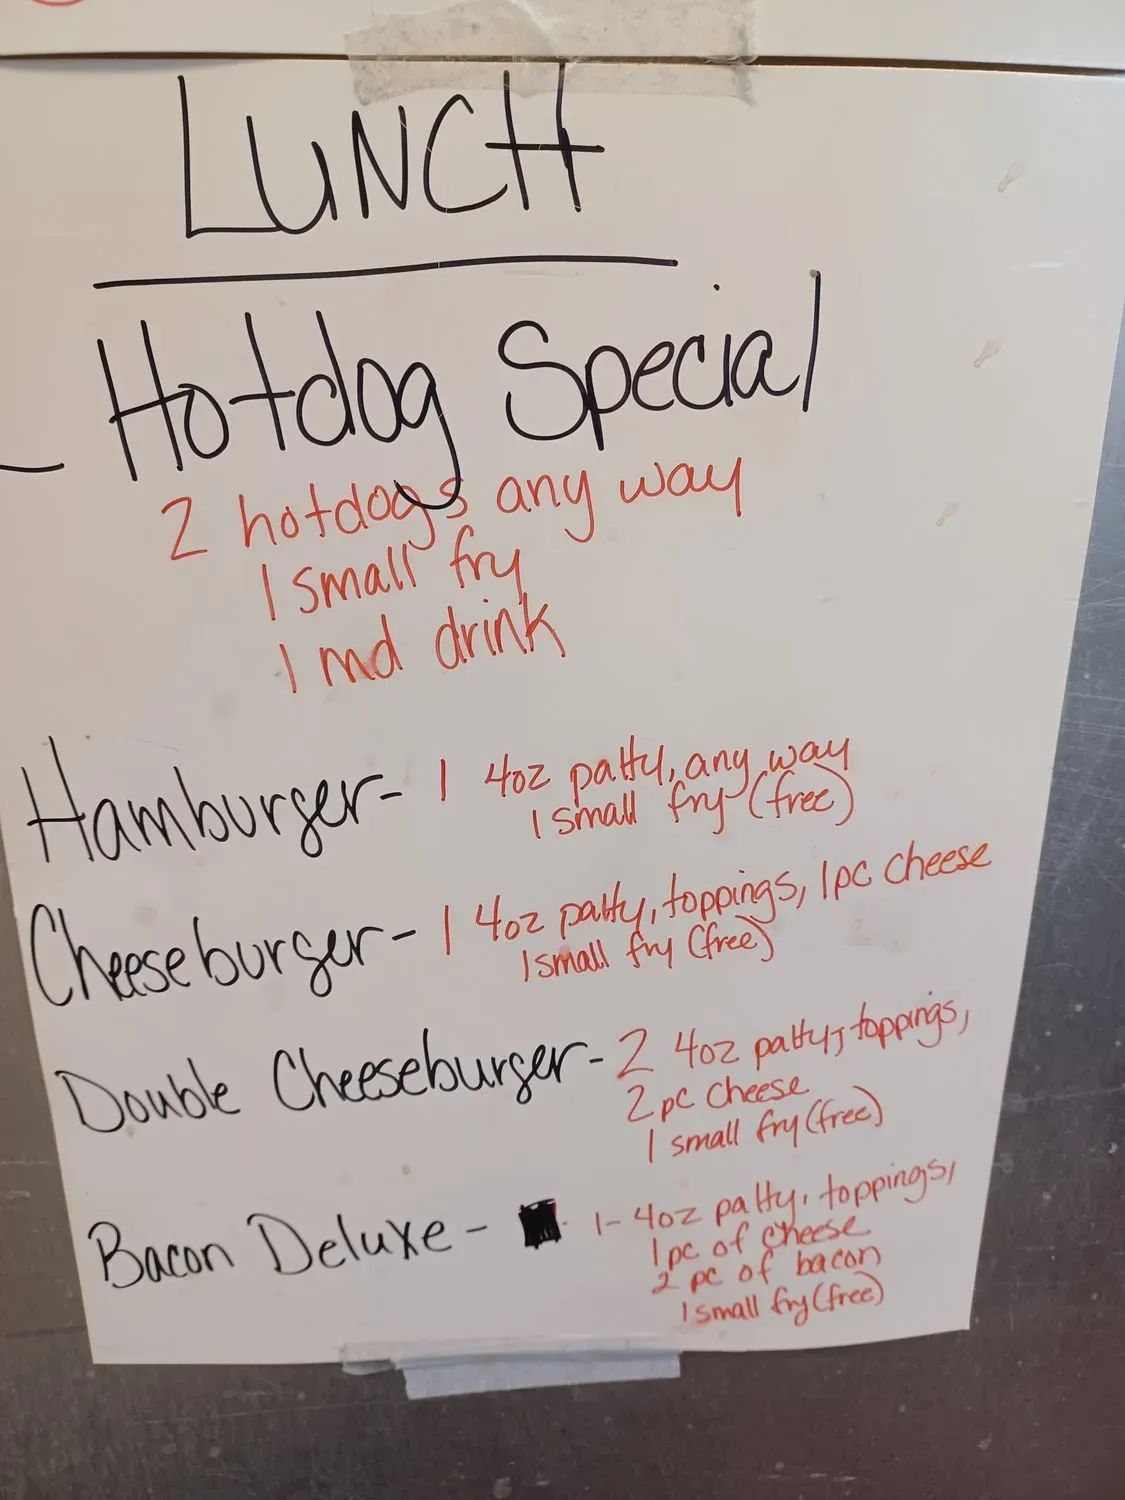 LUNCH
Hotdog Special
2 hotdogs any way
1 small fry
1 md drink
Hamburger- 1 4oz patty, any way
1 small fry (free)
Cheeseburger- 1 4oz patty, toppings, 1pc cheese
1 small fry (free)
Double Cheeseburger- 2 4oz patty, toppings,
2 pc cheese
1 small fry (free)
Bacon Deluxe- 1- 4oz patty, toppings,
1 pc of cheese
2 pc of bacon
1 small fry (free)